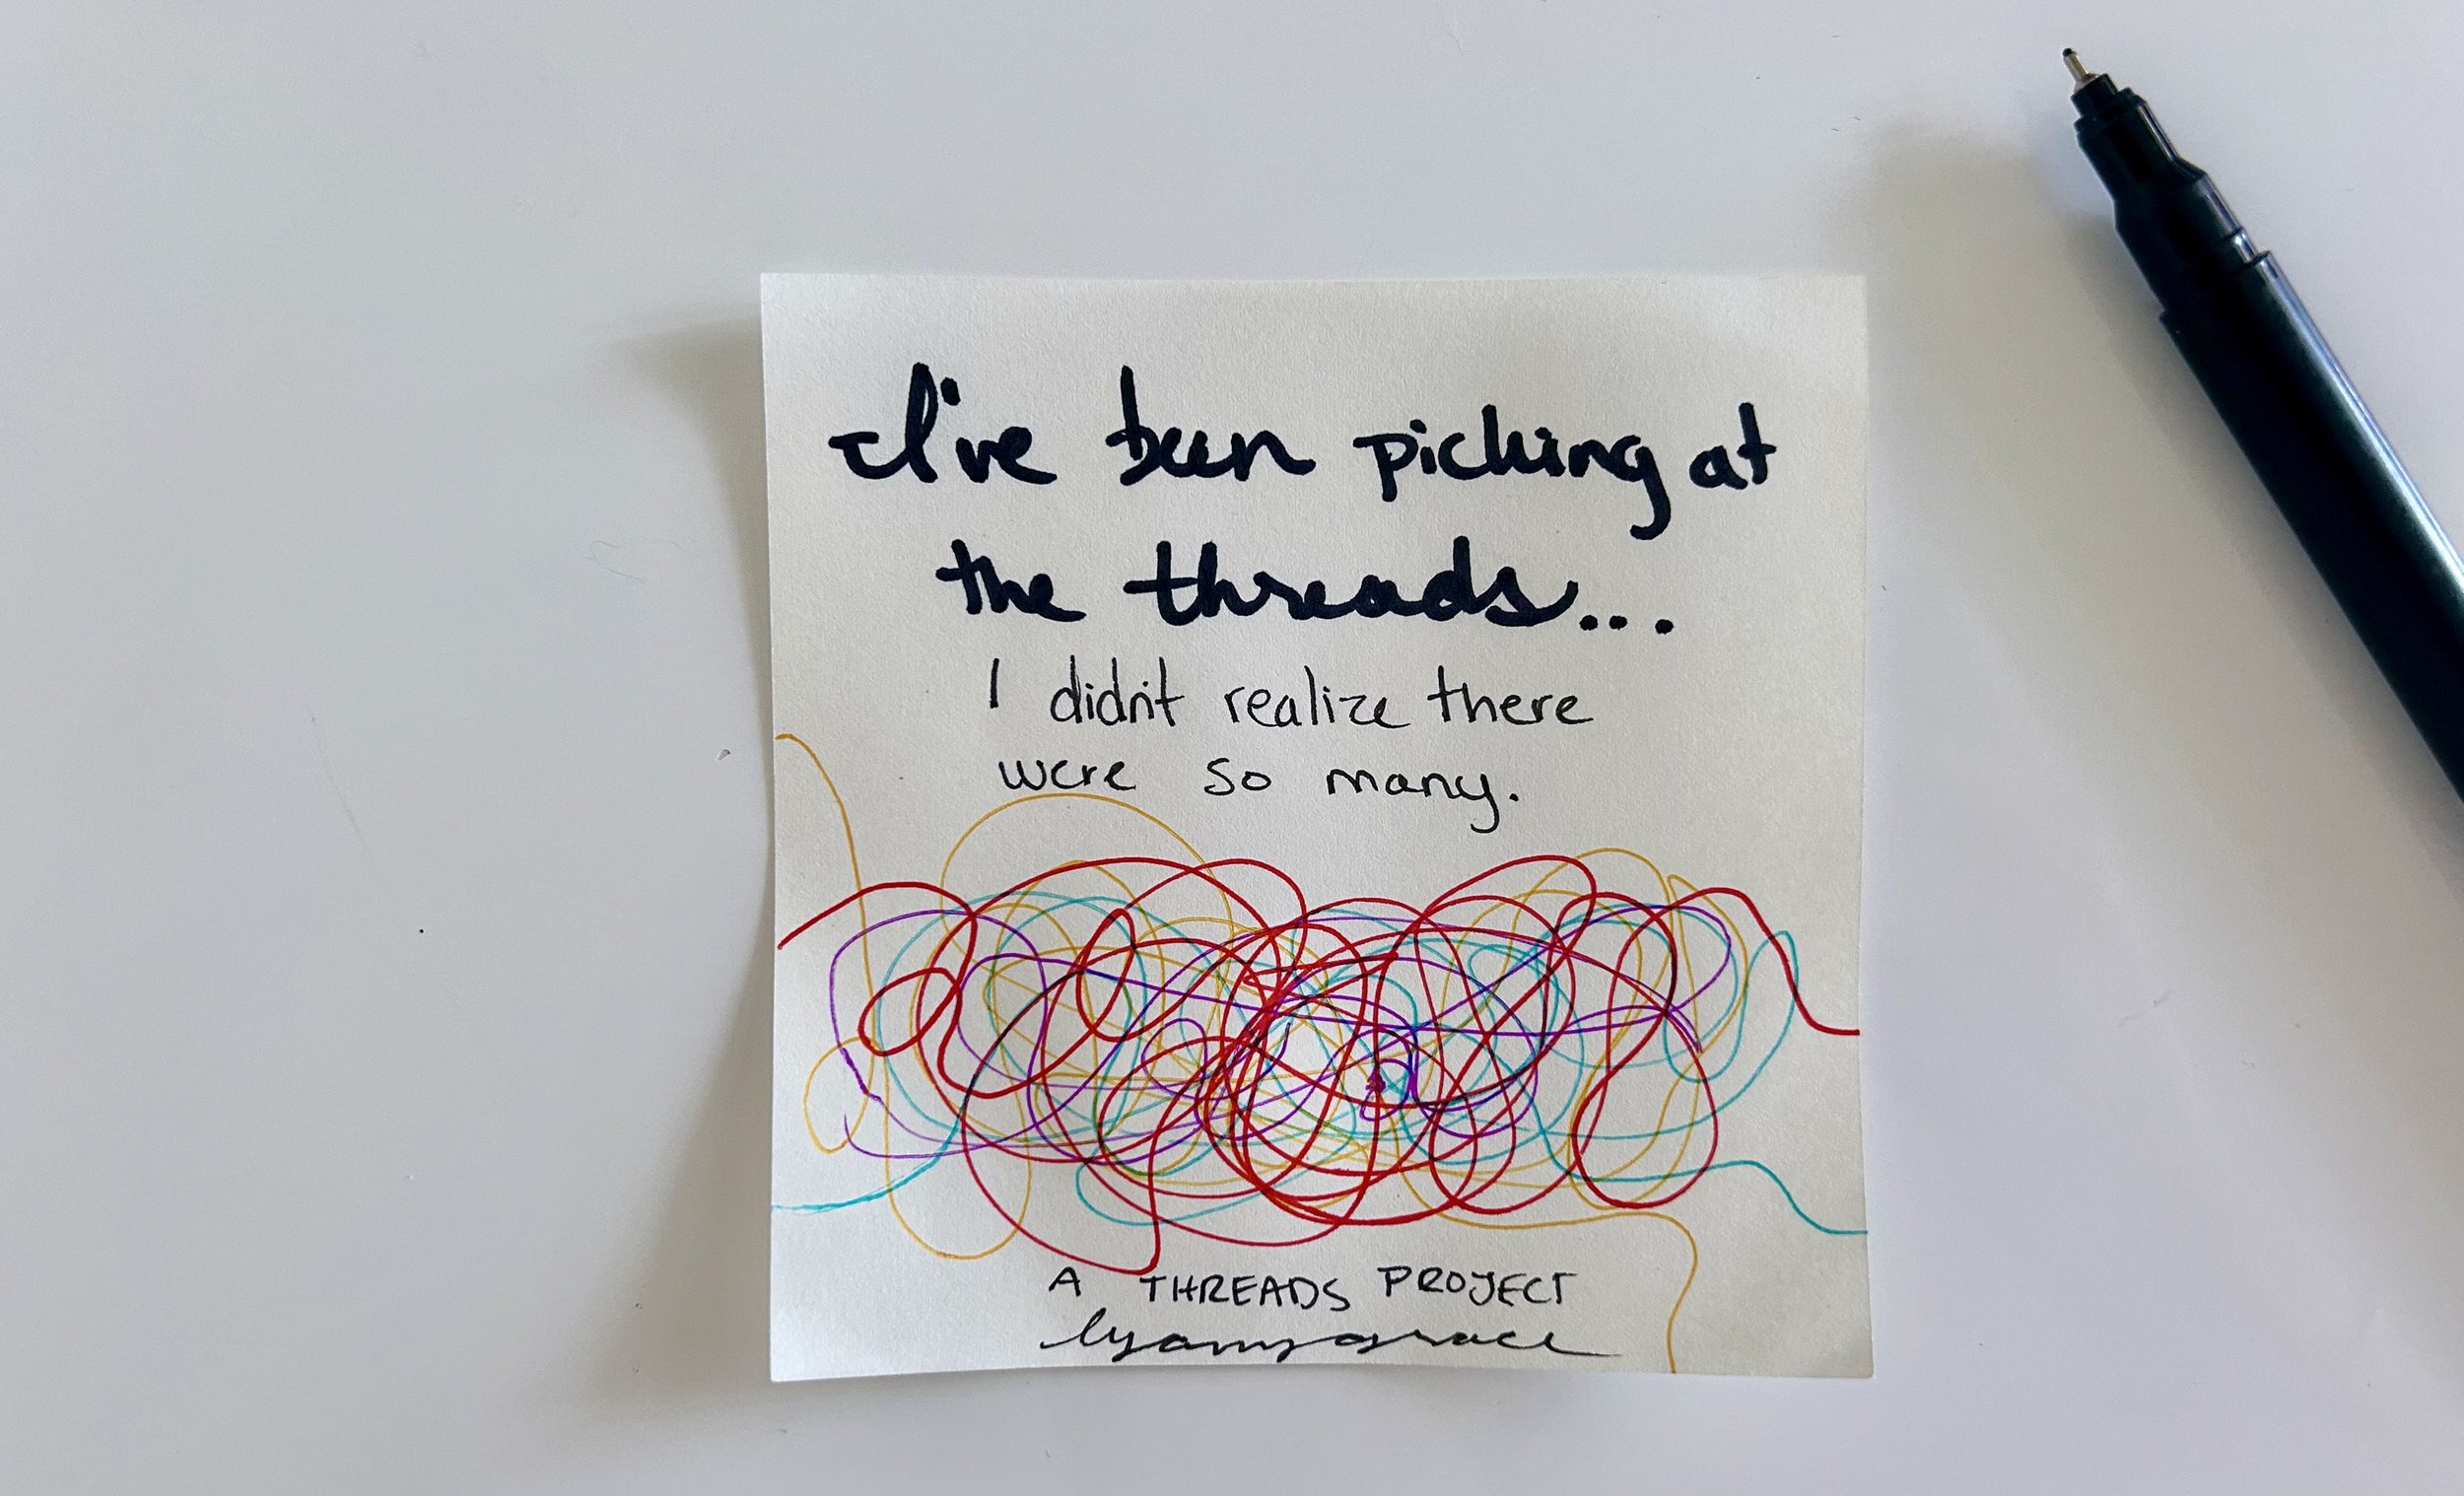 I've been picking at
the threads...
I didn't realize there
were so many.
A THREADS PROJECT
lyamygrace